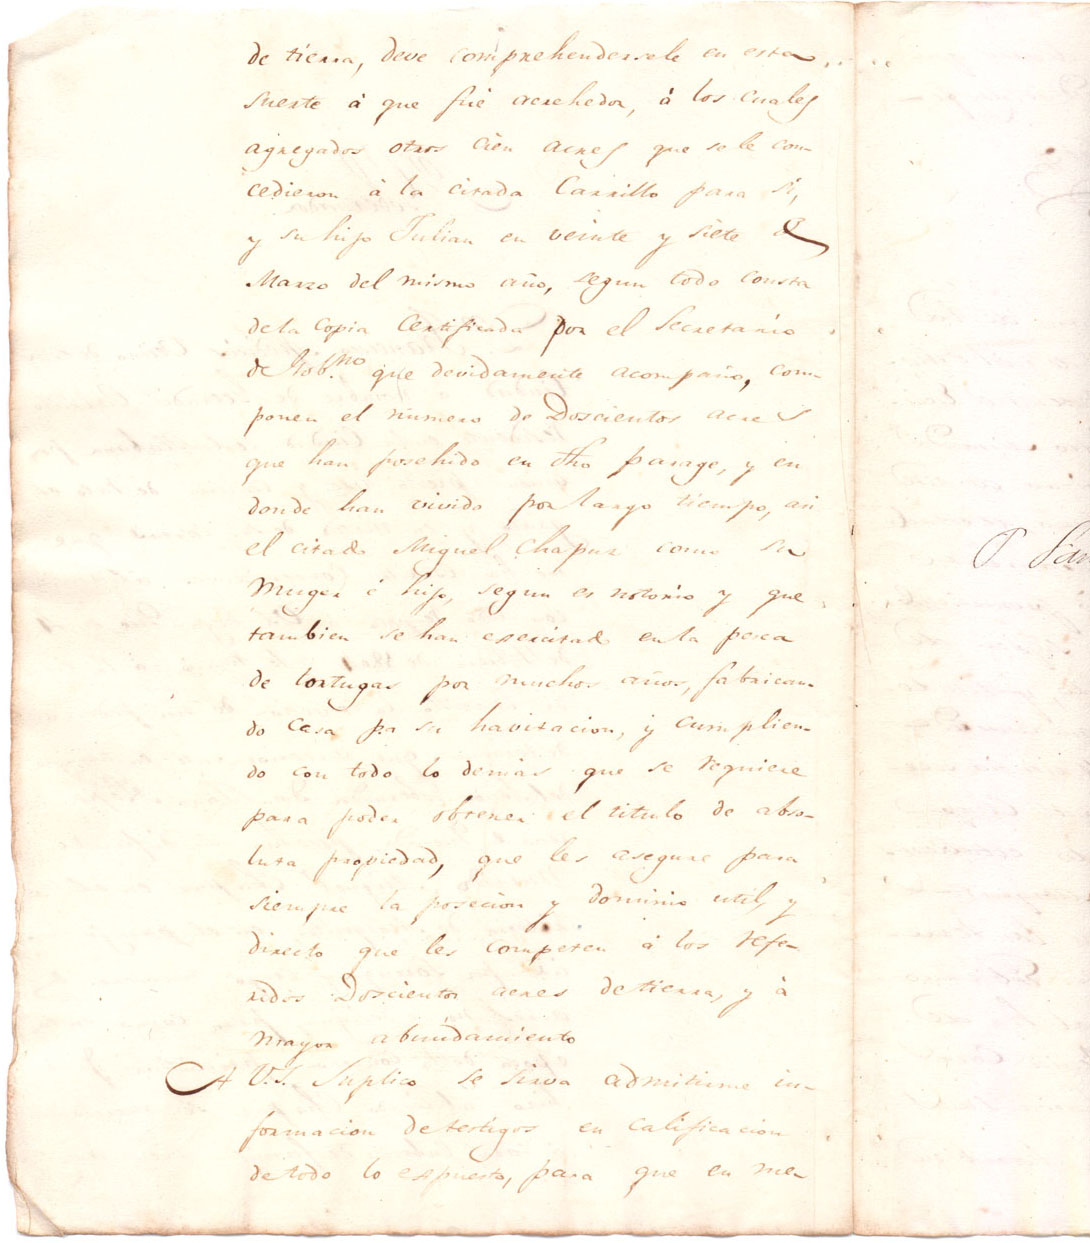 de tierra, deve comprehendersele en esta
suerte à que fué acrehedor, à los cuales
agregados otros cien acres que se le con-
cedieron à la citada Carrillo para si,
y su hijo Julian en veinte y siete de
Marzo del mismo año, segun todo consta
de la Copia Certificada por el Secretario
de Gob.no que devidamente acompaño, com-
ponen el número de Doscientos acres
que han posehido en dho parage, y en
donde han vivido por largo tiempo, asi
el citado Miguel Chapuz como su
Muger é hijo, segun es notorio y que
tambien se han exercitado en la pesca
de tortugas por muchos años, fabrican-
do casa pa su havitacion, y cumplien-
do con todo lo demás que se requiere
para poder obtener el titulo de abso-
luta propiedad, que les asegure para
siempre la posecion y dominio util, y
directo que les competen à los refe-
ridos Doscientos acres de tierra, y à
mayor abundamiento
A V.S. Suplico se sirva admitirme in-
formacion de testigos en calificacion
de todo lo espuesto, para que en me-